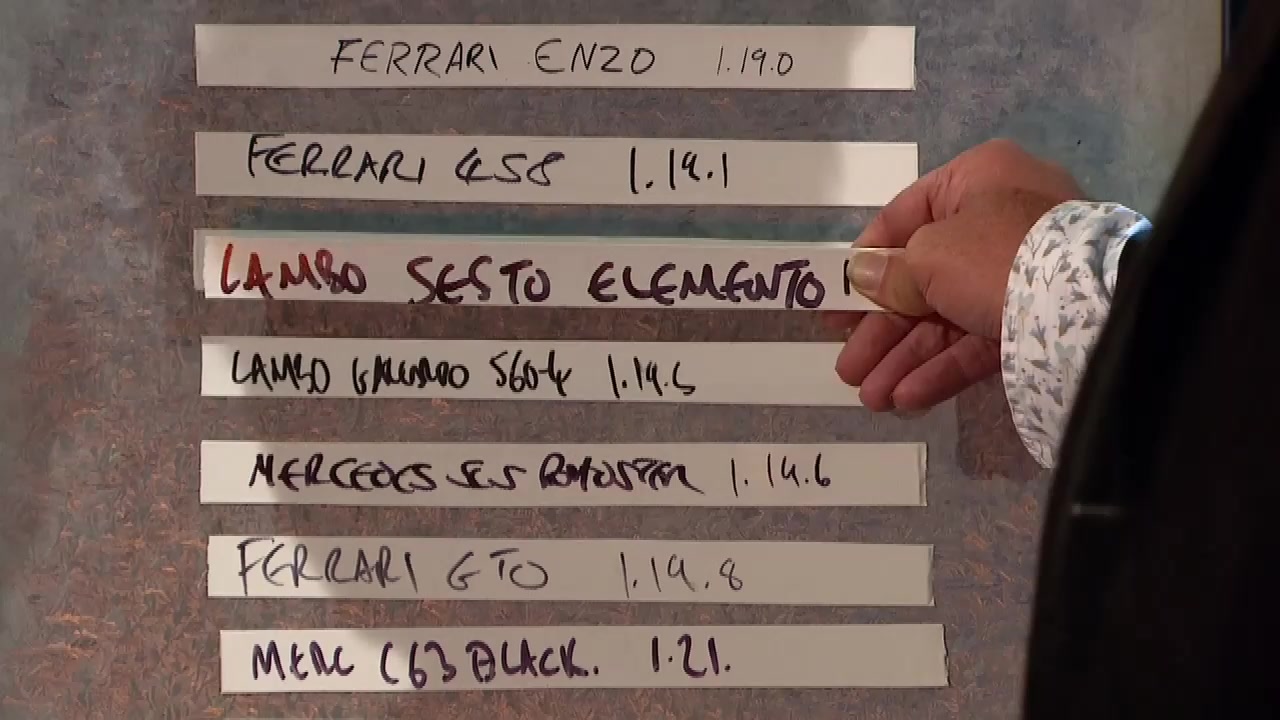 FERRARI ENZO 1.19.0
FERRARI 458 1.19.1
LAMBO SESTO ELEMENTO 1
LAMBO GALLARDO 560-4 1.19.5
MERCEDES SLS ROADSTER 1.19.6
FERRARI GTO 1.19.8
MERC C63 BLACK. 1.21.